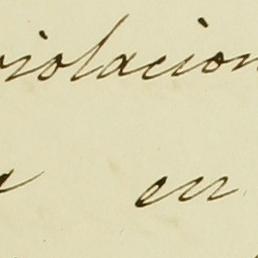 violacion
en